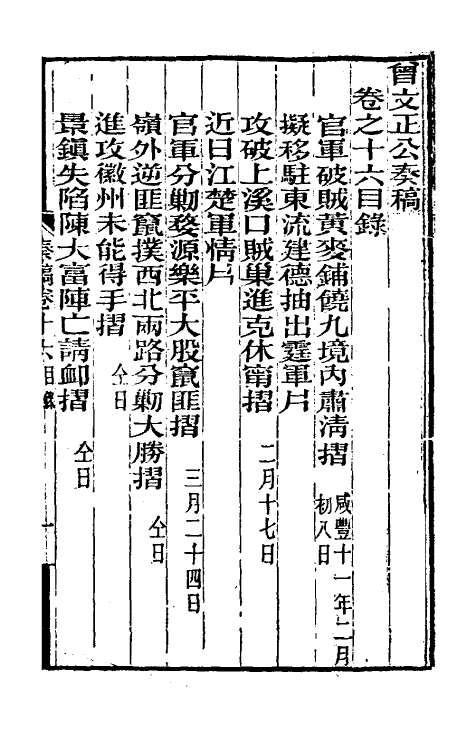 曾文正公奏稿
卷之十六目錄
官軍破賊黃麥鋪饒九境內肅清摺 咸豐十一年二月初八日
擬移駐東流建德抽出霆軍片
攻破上溪口賊巢進克休甯摺 二月十七日
近日江楚軍情片
官軍分勦婺源樂平大股竄匪摺 三月二十四日
嶺外逆匪竄撲西北兩路分勦大勝摺 仝日
進攻徽州未能得手摺 仝日
景鎮失陷陳大富陣亡請卹摺 仝日
奏稿卷十六目錄 一